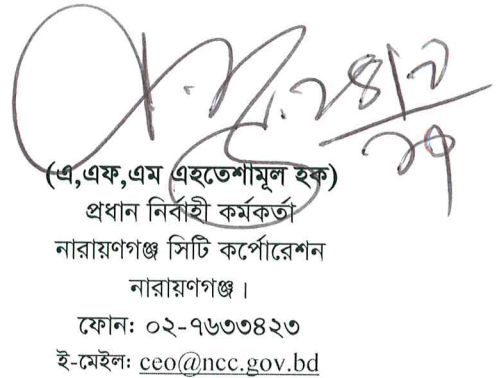 (এ,এফ,এম এহতেশামূল হক)
প্রধান নির্বাহী কর্মকর্তা
নারায়ণগঞ্জ সিটি কর্পোরেশন
নারায়ণগঞ্জ ।
ফোন: ০২-৭৬৩৩৪২৩
ই-মেইল: ceo@ncc.gov.bd